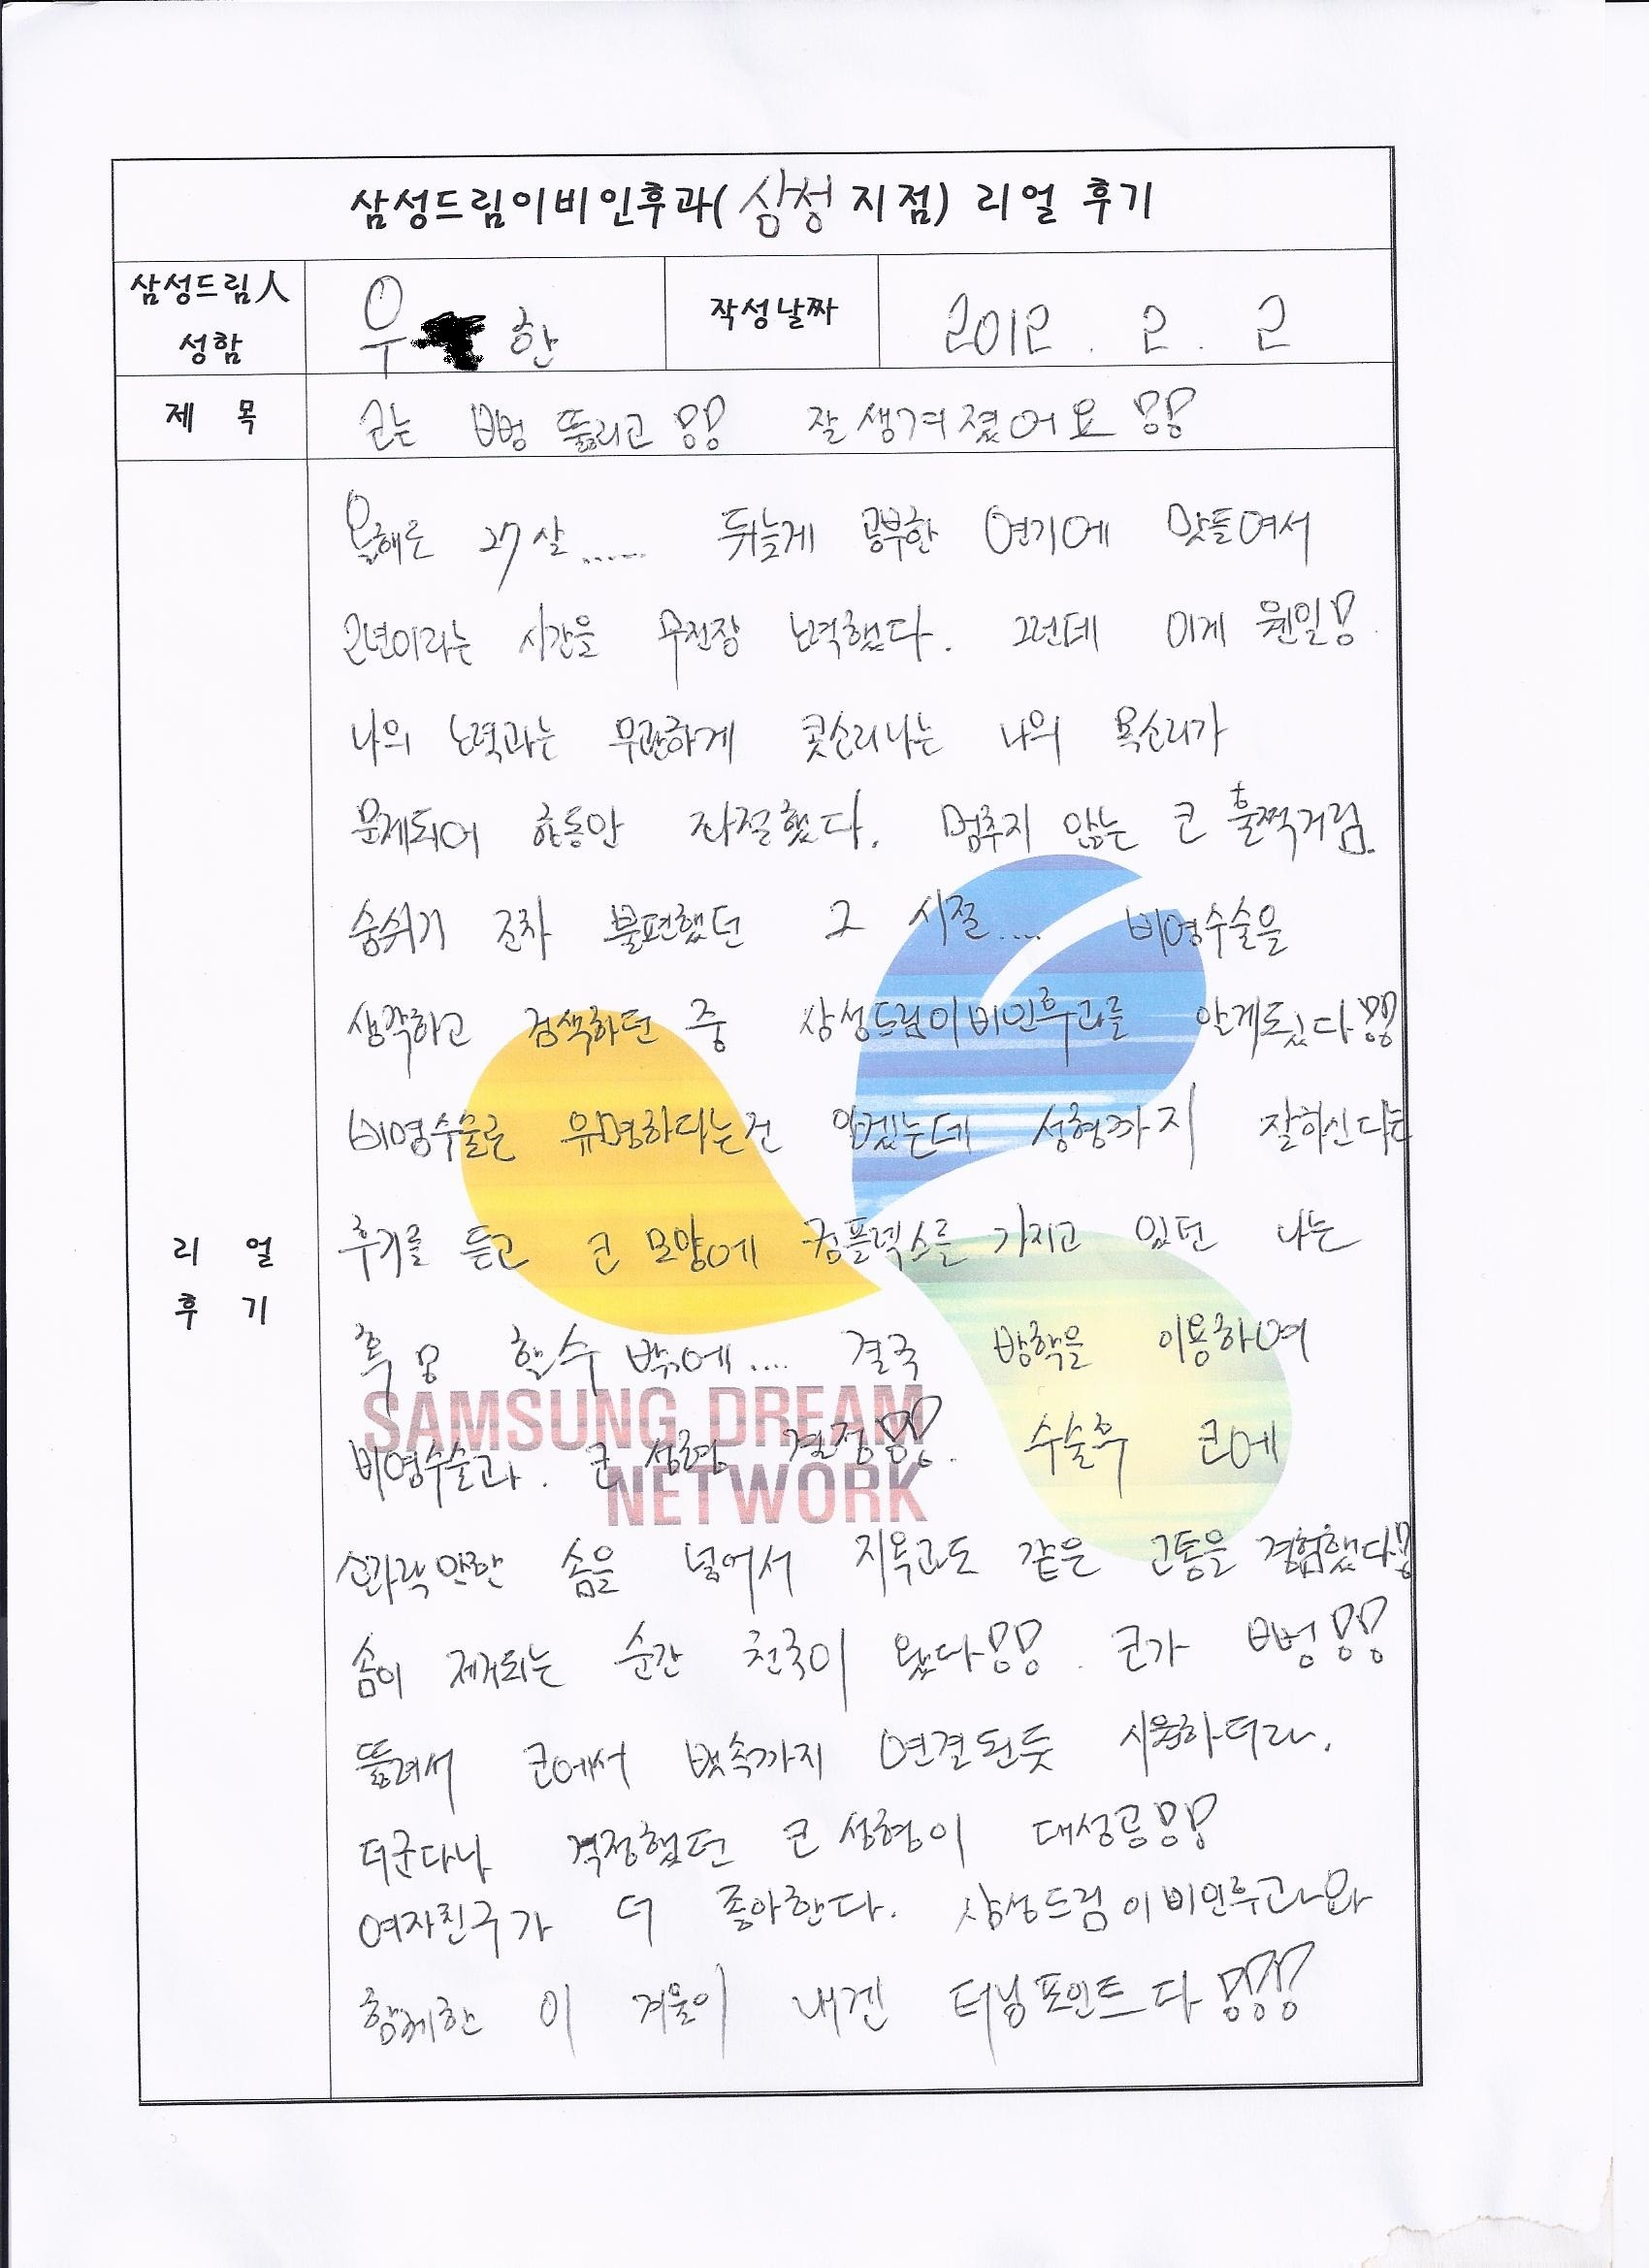 삼성드림이비인후과( 삼성 지점) 리얼 후기
삼성드림人
성함
우 한
작성날짜
2012 . 2 . 2
제 목
코는 뻥 뚫리고!! 잘생겨졌어요!!
올해로 27살...... 뒤늦게 공부한 연기에 맛들여서
2년이라는 시간을 무진장 노력했다. 그런데 이게 웬일!
나의 노력과는 무관하게 콧소리나는 나의 목소리가
문제되어 한동안 좌절했다. 멈추지 않는 코 훌쩍거림.
숨쉬기 조차 불편했던 그 시절.... 비염수술을
생각하고 검색하던 중 삼성드림이비인후과를 알게됬다!!
비염수술로 유명하다는건 알겠는데 성형까지 잘하신다는
후기를 듣고 코 모양에 컴플렉스를 가지고 있던 나는
혹 할수 밖에.... 결국 방학을 이용하여
비염수술과. 코 성형 결정!!!. 수술후 코에
손가락만한 솜을 넣어서 지옥과도 같은 고통을 경험했다!!
솜이 제거되는 순간 천국이 왔다!!!. 코가 뻥!!!
뚫려서 코에서 뱃속까지 연결된듯 시원하더라.
더군다나 걱정했던 코 성형이 대성공!!!
여자친구가 더 좋아한다. 삼성드림이비인후과와
함께한 이 겨울이 내겐 터닝포인트다!!!!
리 얼
후 기
SAMSUNG DREAM
NETWORK